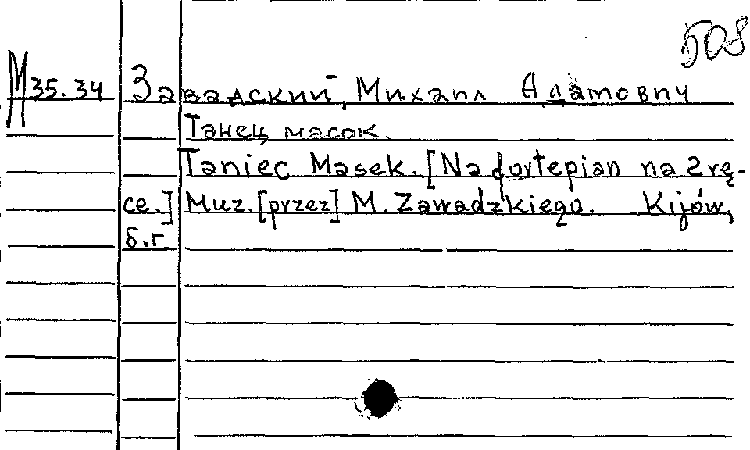 508
М 35.34 Завадский, Михаил Адамович
Танец масок.
Taniec Masek. [Na fortepian na 2 rę-
ce.] Muz. [przez] M. Zawadzkiego. Kijów,
б.г